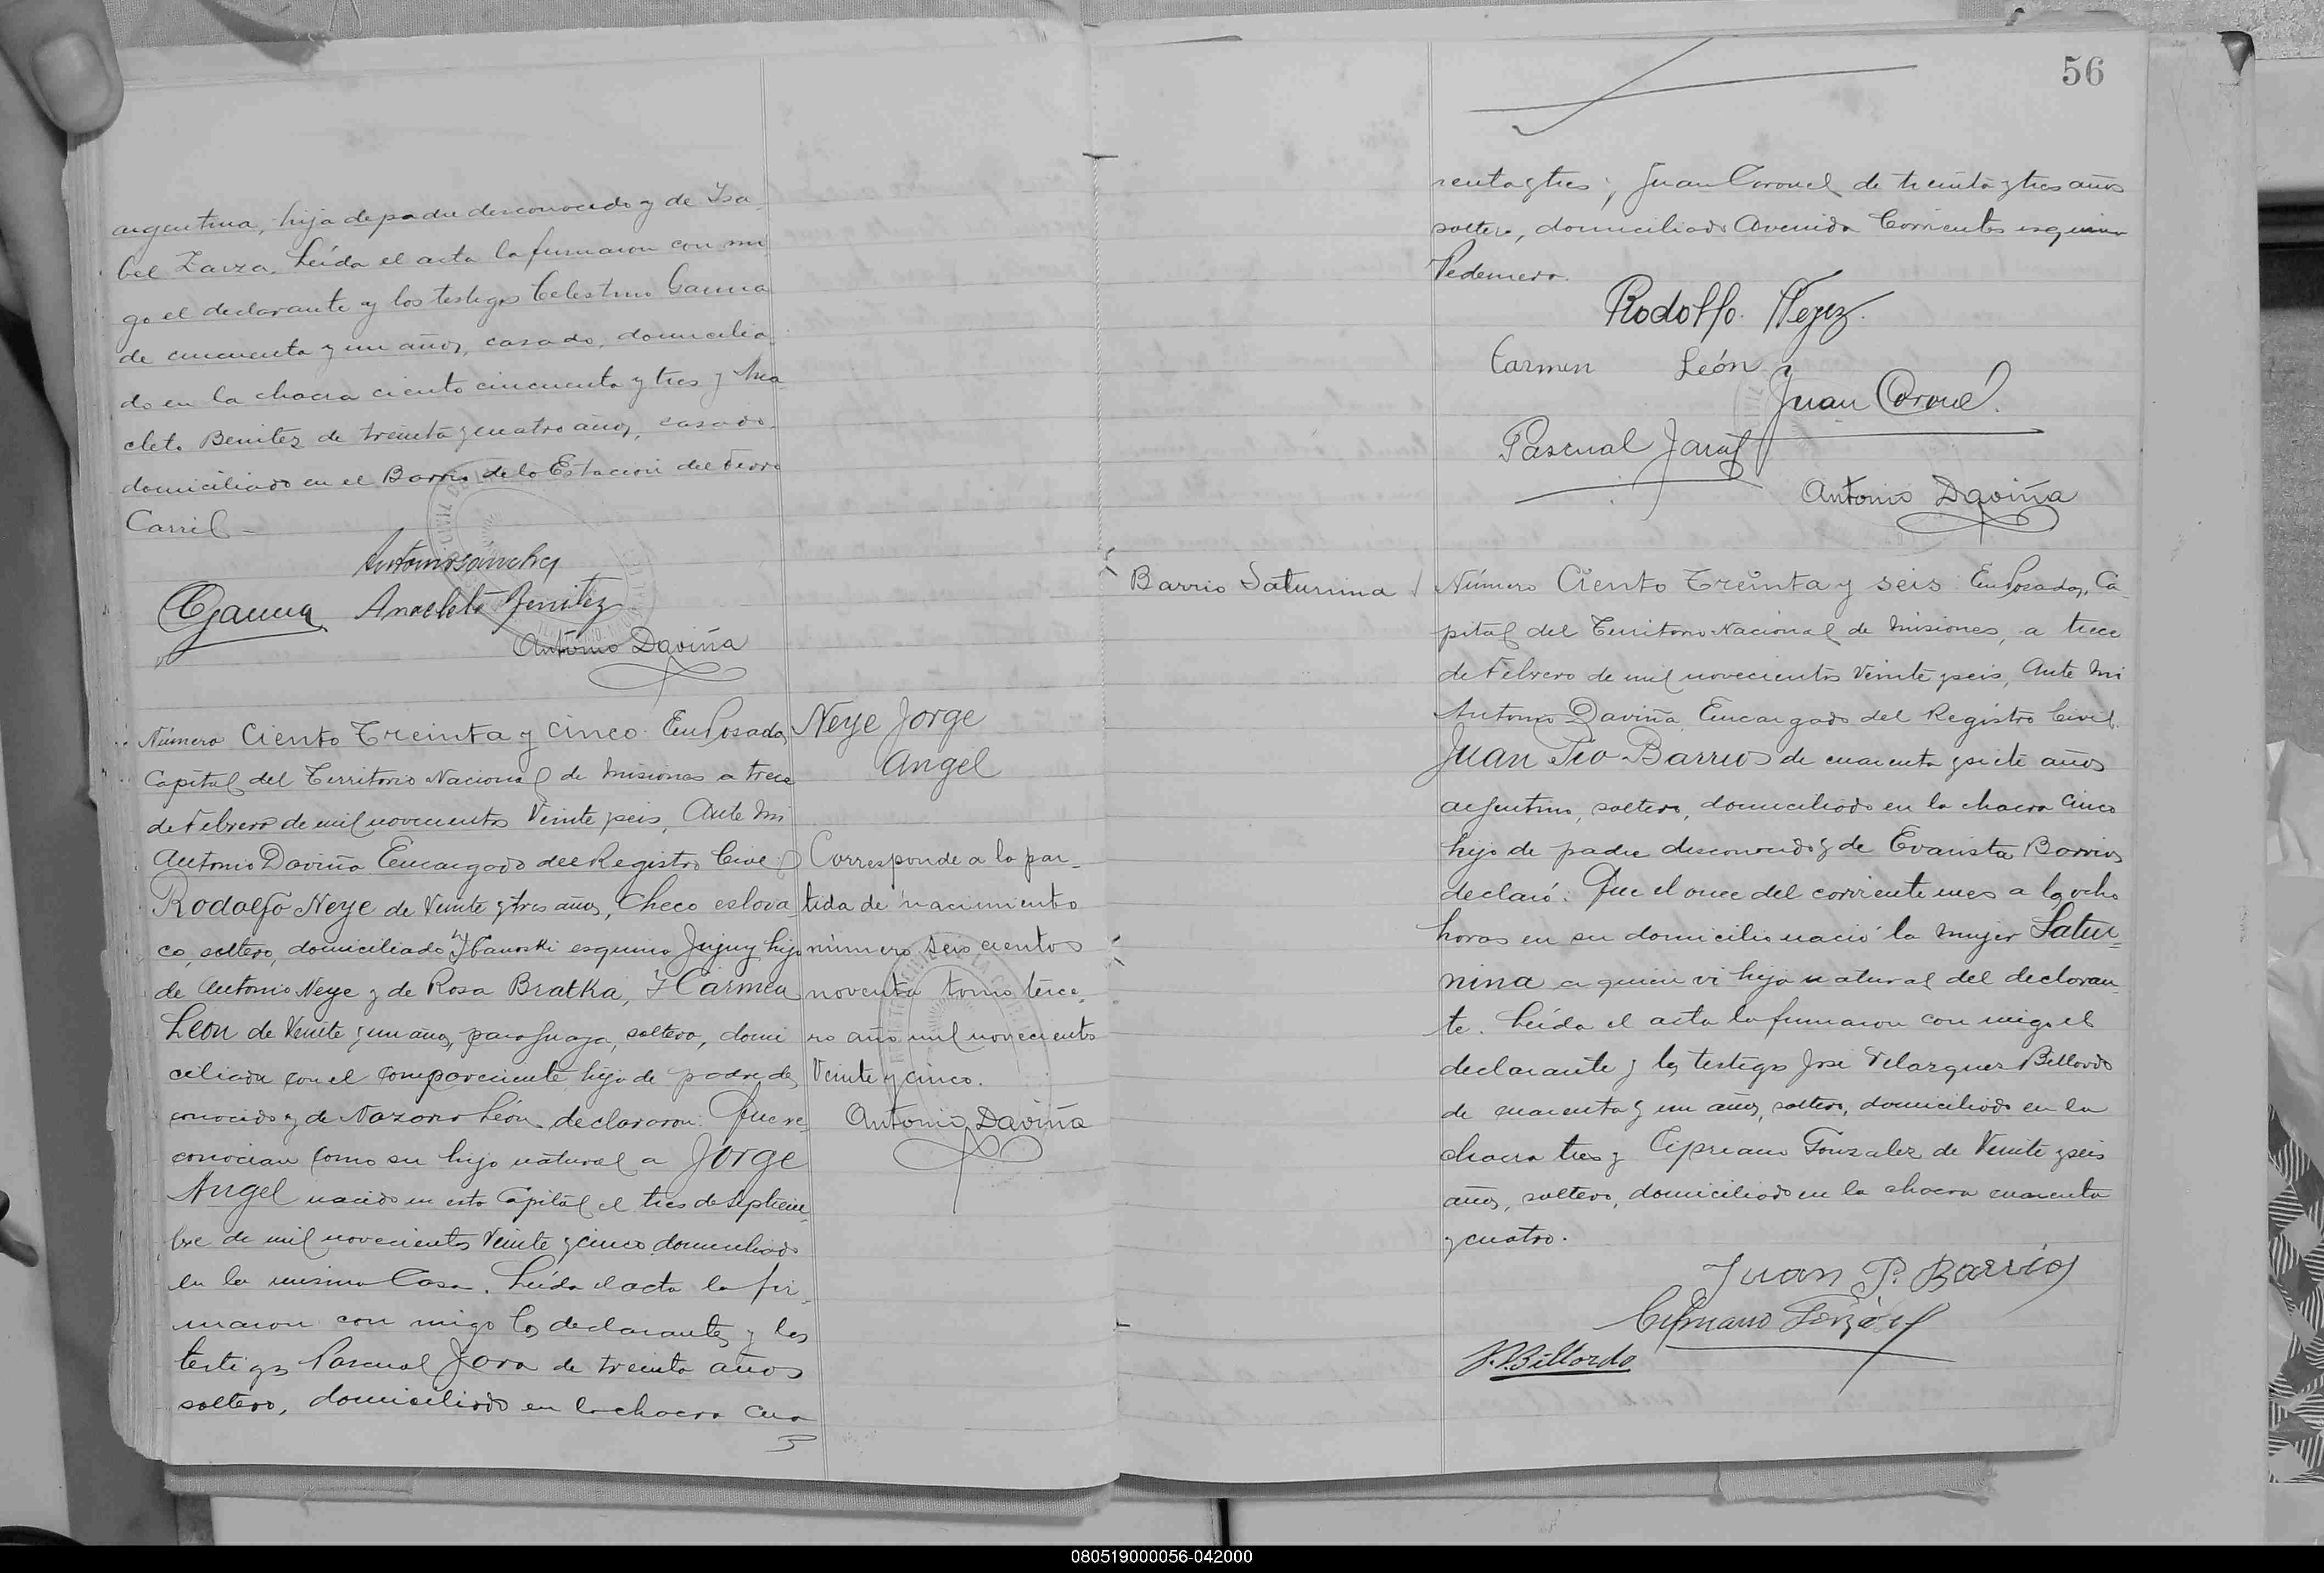 argentina, hija de padre desconocido y de Isa
bel Zarza. Leída el acta la firmaron con mi
go el declarante y los testigos Celestino Gauna
de cincuenta y un años, casado, domicilia
do en la chacra ciento cincuenta y tres y Ana
cleto Benitez de treinta y cuatro años, casado
domiciliado en el Barrio de la Estación del Ferro
Carril -
Antonio Sanchez
CGauna Anacleto Benitez
Antonio Daviña
Número Ciento Treinta y cinco. En Posadas
Capital del Territorio Nacional de Misiones a trece
de Febrero de mil novecientos Veinte y seis, Ante Mi
Antonio Daviña Encargado del Registro Civil
Rodolfo Neye de Veinte y tres años, Checo eslova
co, soltero, domiciliado esquina Jujuy hijo
de Antonio Neye y de Rosa Bratka, Y Carmen
León de Veinte y un años, paraguaya, soltera, domi
ciliada con el compareciente, hija de padre des
conocido y de Nazaria León declararon: Que re
conocian como su hijo natural a Jorge
Angel nacido en esta Capital el tres de Septiem
bre de mil novecientos Veinte y cinco domiciliado
en la misma Casa. Leída el acta la fir
maron con migo los declarantes y los
testigos Pascual Jara de treinta años
soltero, domiciliado en la chacra cua
Neye Jorge
Angel
Corresponde a la par-
tida de nacimiento
número seis cientos
noventa tomo terce
ro año mil novecientos
Veinte y cinco.
Antonio Daviña
56
renta y tres y Juan Coronel de treinta y tres años
soltero, domiciliado Avenida Corrientes esquina
Pedernera.
Rodolfo Neyez.
Carmen León
Juan Coronel
Pascual Jara
Antonio Daviña
Barrio Saturnina
Número Ciento Treinta y seis. En Posadas, Ca-
pital del Territorio Nacional de Misiones, a trece
de Febrero de mil novecientos Veinte y seis, Ante Mi
Antonio Daviña Encargado del Registro Civil
Juan Pio Barrios de cuarenta y siete años
argentino, soltero, domiciliado en la chacra cinco
hijo de padre desconocido y de Evarista Barrios
declaró: Que el once del corriente mes a las ocho
horas en su domicilio nació la mujer Satur-
nina a quien vi hija natural del declaran-
te. Leída el acta la firmaron con migo el
declarante y los testigos José Velazquez Billordo
de cuarenta y un años, soltero, domiciliado en la
chacra tres y Cipriano Gonzalez de Veinte y seis
años, soltero, domiciliado en la chacra cuarenta
y cuatro.
Juan P. Barrios
Cipriano Gonzalez
J.V. Billordo
080519000056-042000